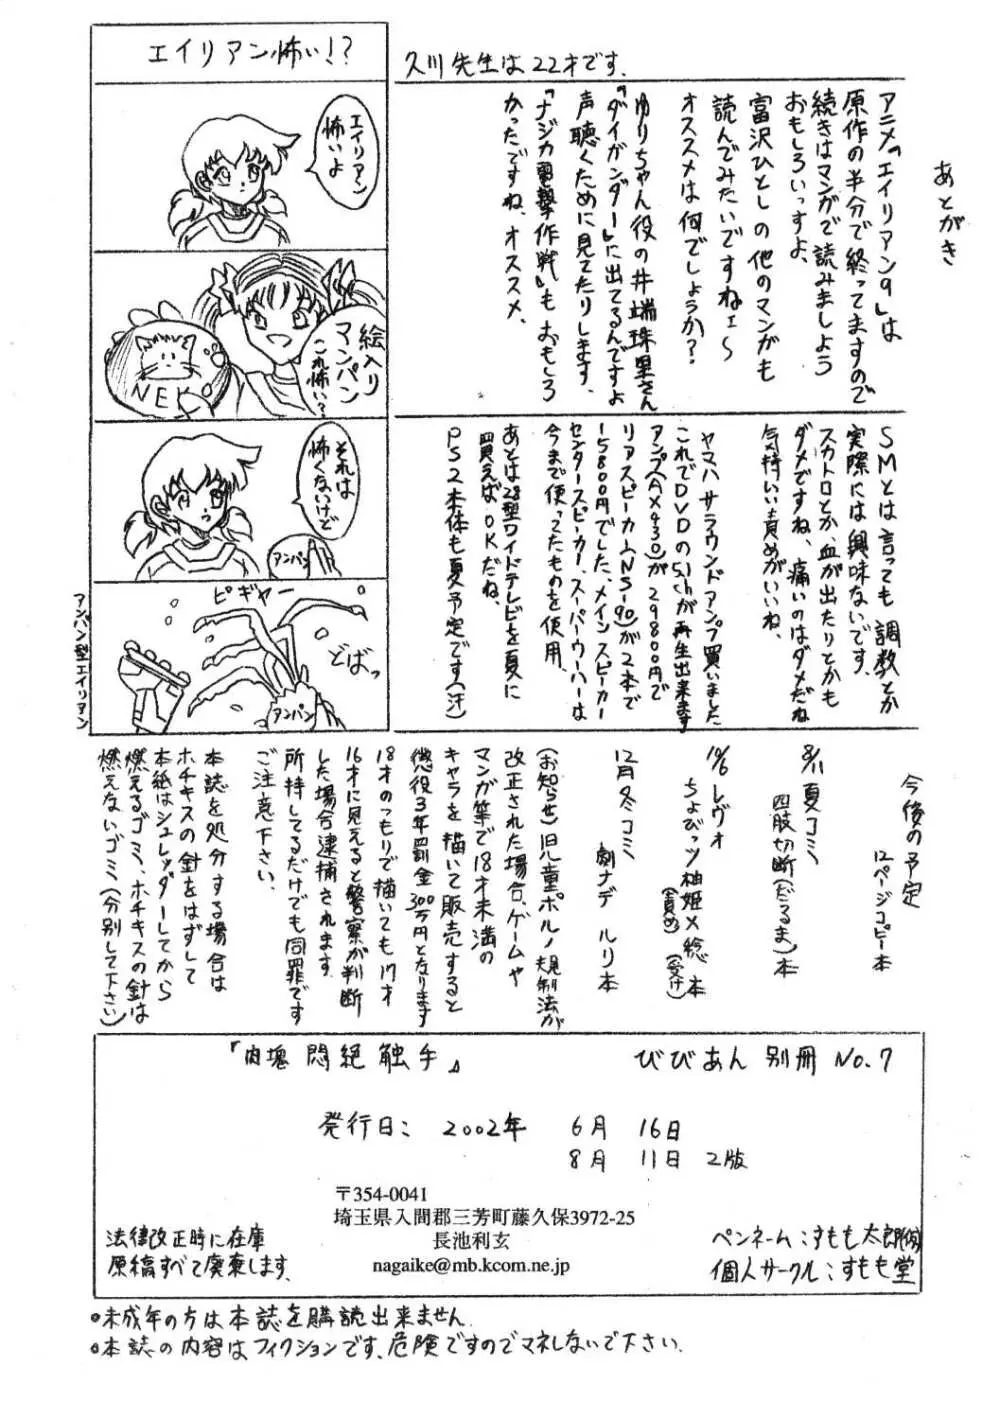 エイリアン怖い!?
エイリアン
怖いよ
絵入り
マンパン
これ怖い?
NEK
それは
怖くないけど
アンパン
ピギャー
どばっ
アンパン
アンパン型エイリアン
久川先生は22才です.
あとがき
アニメ『エイリアン9』は
原作の半分で終ってますので
続きはマンガで読みましょう
おもしろいっすよ、
富沢ひとしの他のマンガも
読んでみたいですねェ〜
オススメは何でしょうか?
ゆりちゃん役の井端珠里さん
『ダイガンダー』に出てるんですよ
声聴くために見てたりします、
『ナジカ電撃作戦』もおもしろ
かったですね、オススメ、
SMとは言っても調教とか
実際には興味ないです、
スカトロとか、血が出たりとかも
ダメですね、痛いのはダメだね
気持いい責めがいいね、
ヤマハサラウンドアンプ買いました
これでDVDの5.1chが再生出来ます
アンプ(AX430)が29800円で
リアスピーカー(NS-90)が2本で
15800円でした、メインスピーカー
センタースピーカー、スーパーウーハーは
今まで使ってたものを使用、
あとは28型ワイドテレビを夏に
買えばOKだね、
PS2本体も夏予定です(汗)
今後の予定
12ページコピー本
8/11夏コミ
四肢切断(だるま)本
10/6レヴォ
ちょびっツ柚姫×稔本
(責め)(受け)
12月冬コミ
劇ナデ ルリ本
(お知らせ)旧児童ポルノ規制法が
改正された場合、ゲームや
マンガ等で18才未満の
キャラを描いて販売すると
懲役3年罰金300万円となります
18才のつもりで描いても17才
16才に見えると警察が判断
した場合逮捕されます
所持してるだけでも同罪です
ご注意下さい.
本誌を処分する場合は
ホチキスの針をはずして
本紙はシュレッダーしてから
燃えるゴミ、ホチキスの針は
燃えないゴミ(分別して下さい)
『肉塊悶絶触手』 びびあん別冊 No.7
発行日: 2002年 6月 16日
8月 11日 2版
〒354-0041
埼玉県入間郡三芳町藤久保3972-25
長池利玄
nagaike@mb.kcom.ne.jp
法律改正時に在庫
原稿すべて廃棄します.
ペンネーム:すもも太郎(仮)
個人サークル:すもも堂
•未成年の方は本誌を購読出来ません.
•本誌の内容はフィクションです、危険ですのでマネしないで下さい.